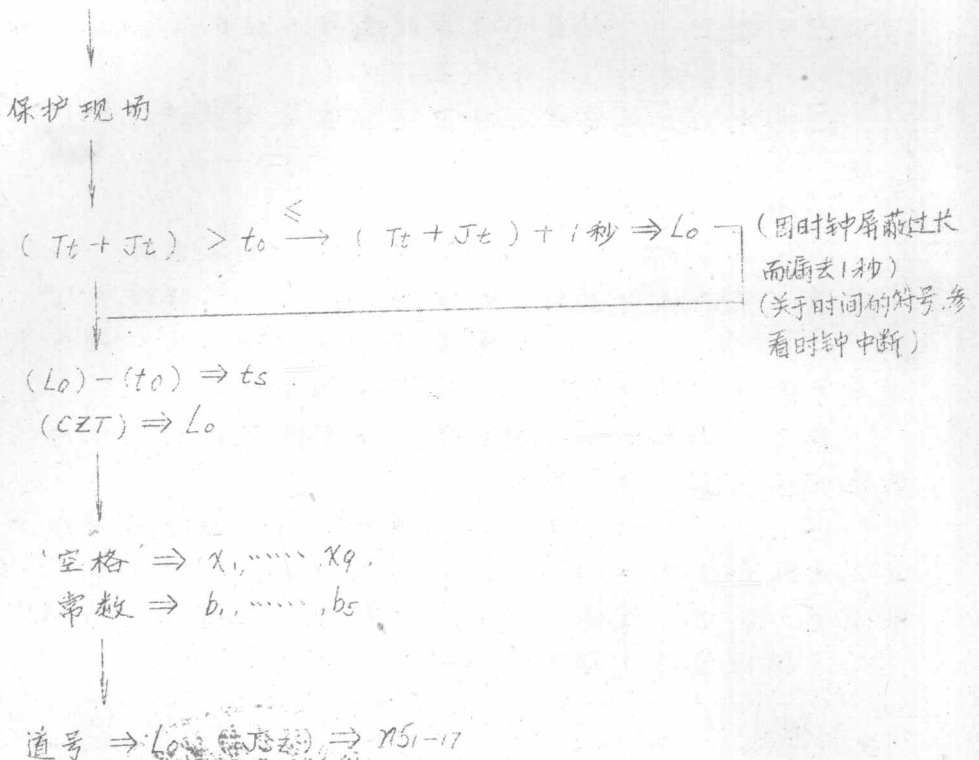 保护现场
≤
(Tt + Jt) > t0 → (Tt + Jt) + 1秒 ⇒ L0 (因时钟屏蔽过长
而漏去1秒)
(关于时间的符号,参
看时钟中断)
(L0) - (t0) ⇒ ts
(CZT) ⇒ L0
'空格' ⇒ x1, ……, x9.
常数 ⇒ b1, ……, b5
道号 ⇒ L0 ⇒ n51-17